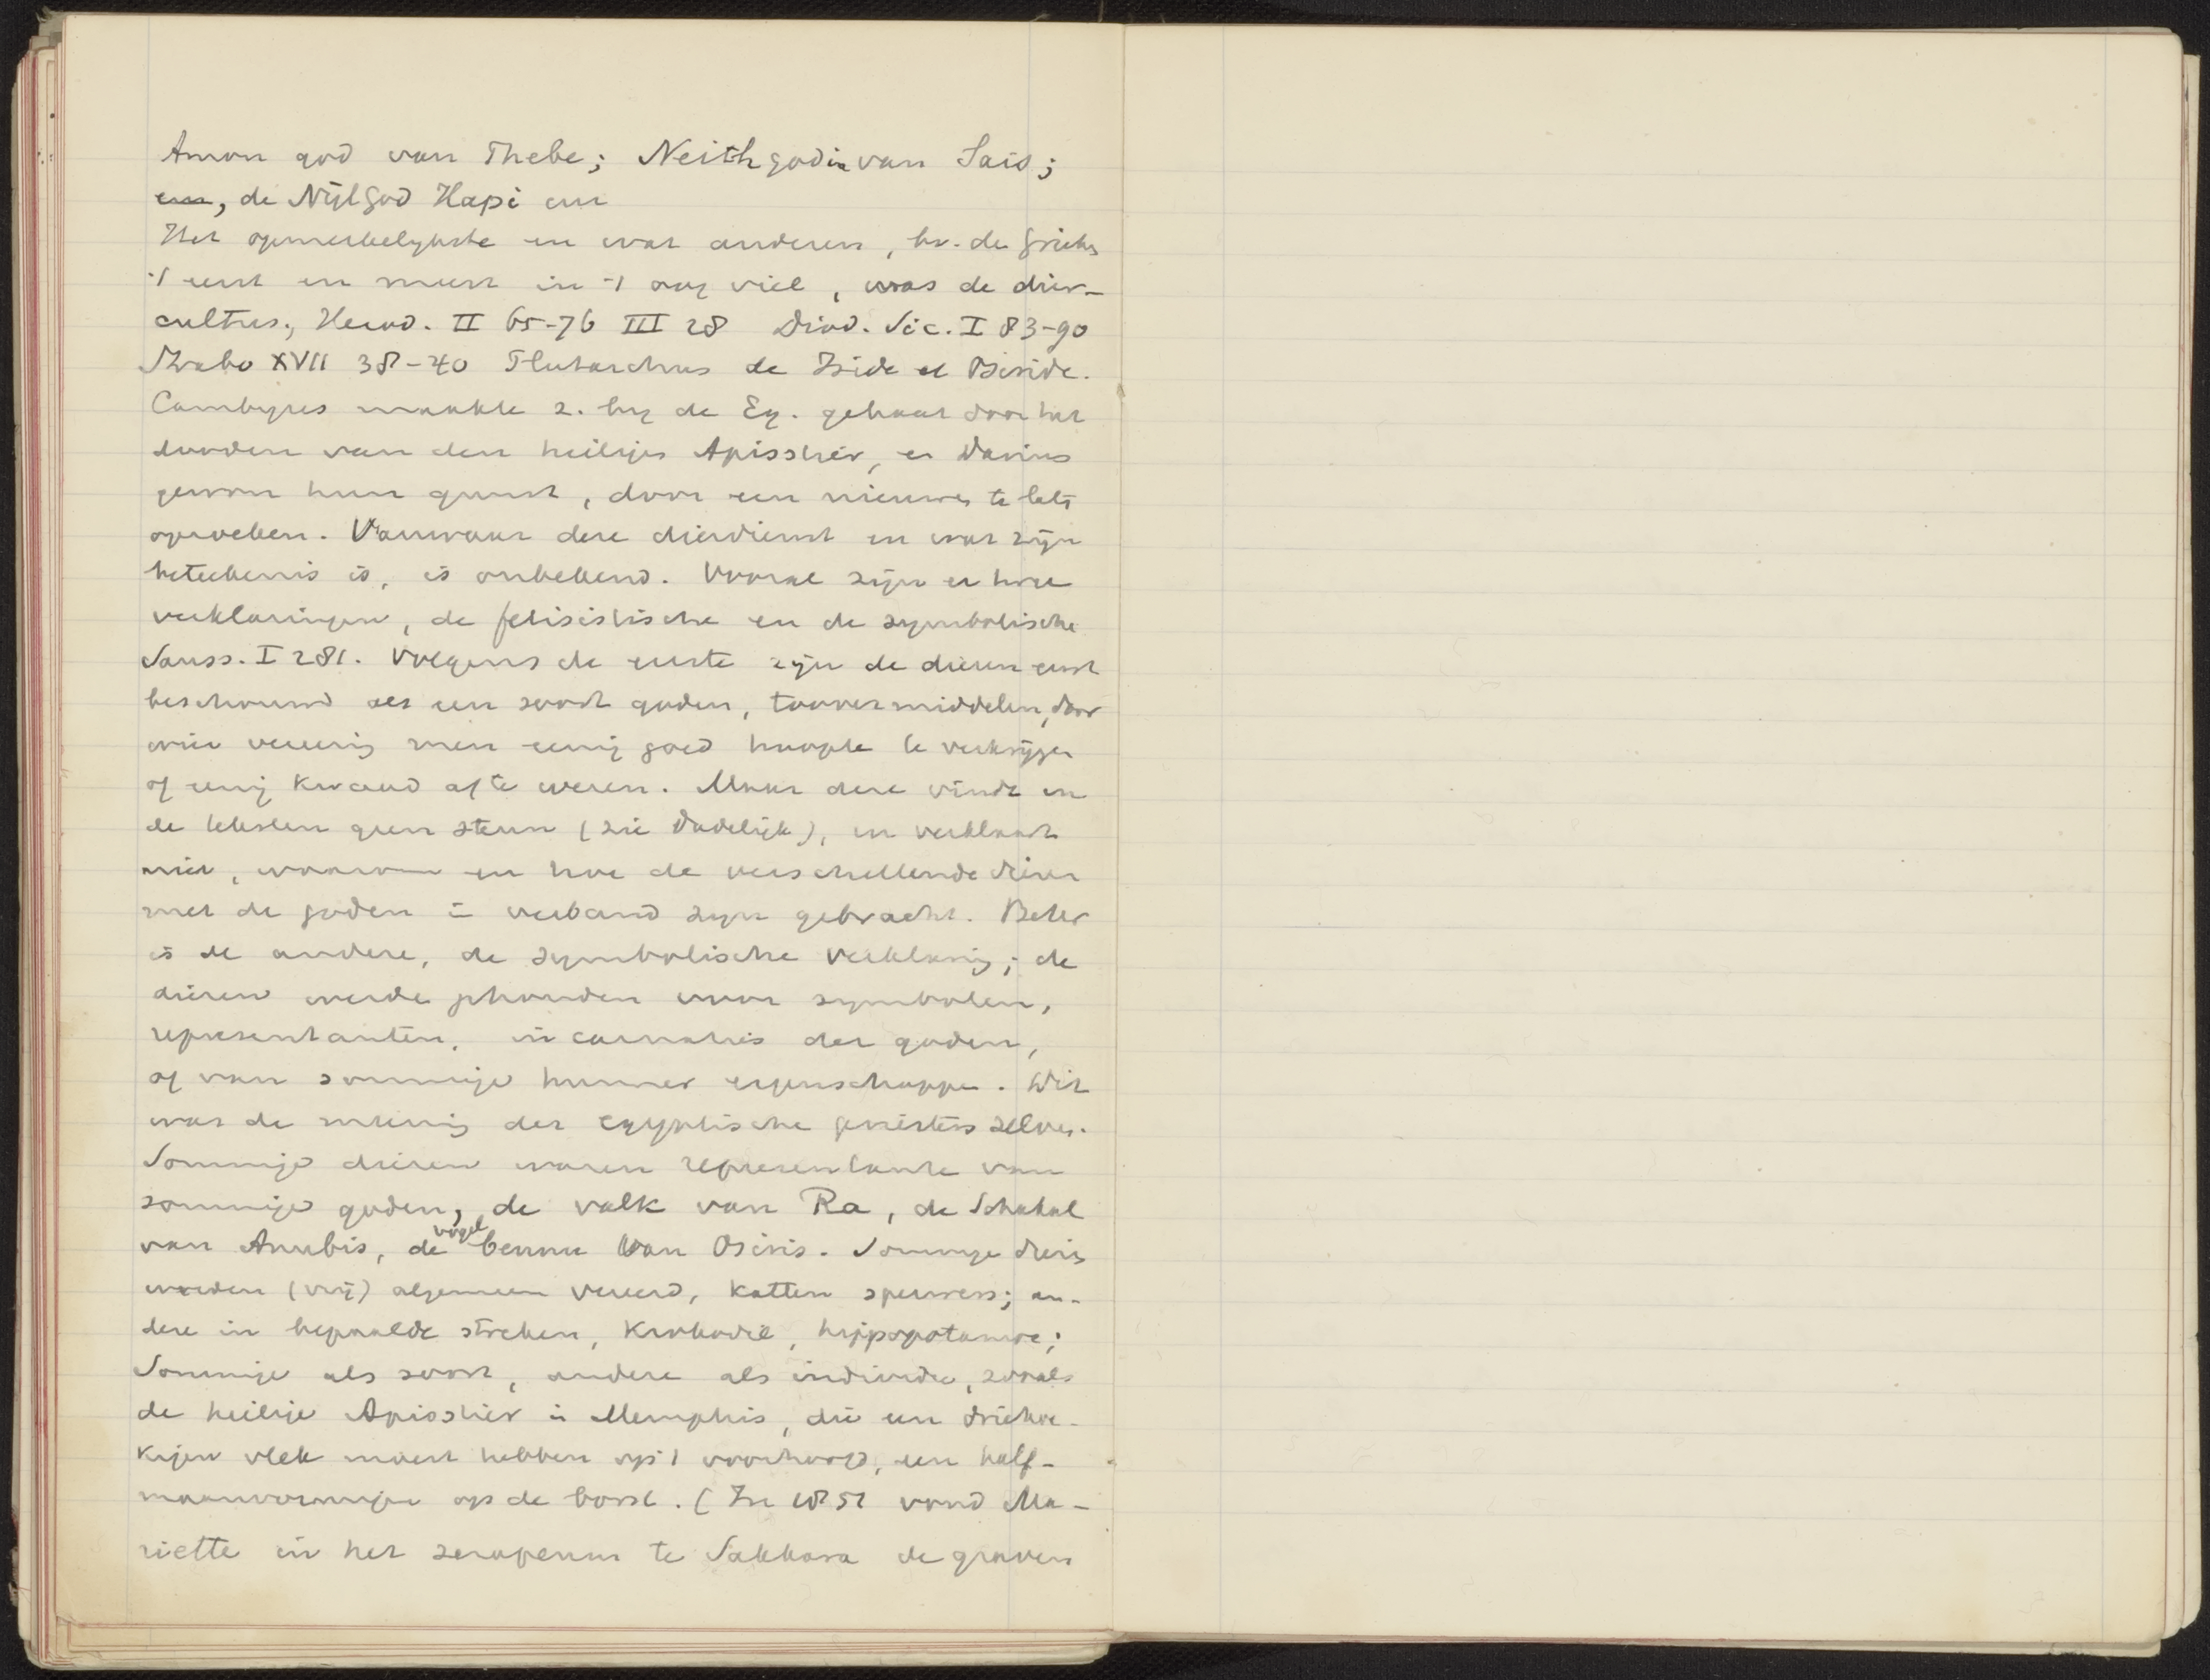 Amon god van Thebe; Neith godin van Sais;
en, de Nijlgod Hapi en
Het opmerkelykste en wat anderen, bv. de Grieken
't eerst en meest in 't oog viel, was de dier-
cultus, Herod. II 65-76 III 28 Diod. Sic. I 83-90
Strabo XVII 38-40 Plutarchus de Iside et Osiride.
Cambyses maakte z. by de Eg. gehaat door het
dooden van den heilige Apisstier, en Darius
gewon hun gunst, door een nieuwe te laten
opzoeken. Vanwaar deze dierdienst en wat zijn
beteekenis is, is onbekend. Vooral zijn er twee
verklaringen, de fetisistische en de symbolische
Sauss. I 281. Volgens de eerste zijn de dieren eerst
beschouwd als een soort goden, toovermiddelen, door
wier vereering men eenig goed hoopte te verkrijgen
of eenig kwaad af te weren. Maar deze vindt in
de teksten geen steun (zie dadelijk), en verklaart
niet, waarom en hoe de verschillende dieren
met de goden in verband zijn gebracht. Beter
is de andere, de symbolische verklaring; de
dieren werden gehouden voor symbolen,
representanten, incarnaties der goden,
of van sommige hunner eigenschappen. Dit
was de mening der Egyptische priesters zelve.
Sommige dieren waren representante van
sommige goden, de valk van Ra, de Schakal
van Anubis, de vogel bennu van Osiris. Sommige dieren
werden (vrij) algemeen vereerd, katten sperwers; an-
dere in bepaalde streken, Krokodil, hyppopotamos;
Sommige als soort, andere als individu, zooals
de heilige Apisstier in Memphis, die een driehoe-
kigen vlek moest hebben op 't voorhoofd, een half-
maanvormige op de borst. (In 1851 vond Ma-
riette in het serapeum te Sakkara de graven